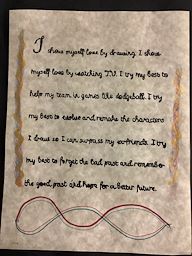 I show myself love by drawing. I show
myself love by watching T.V. I try my best to
help my team in games like dodgeball. I try
my best to evolve and remake the characters
I draw so I can surpass my
my best to forget the bad past and remember
the good past and hope for a better future.